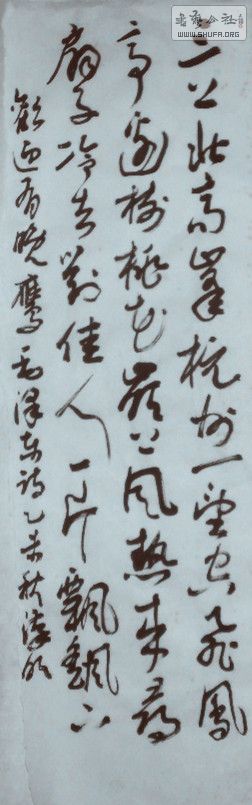 三上北高峯杭州一望空飞凤
亭边树桃花岭上风热来寻
扇子冷去对佳人一片飘飘下
欢迎有晚鹰毛泽东诗乙未秋
书法公社
WWW.SHUFA.ORG